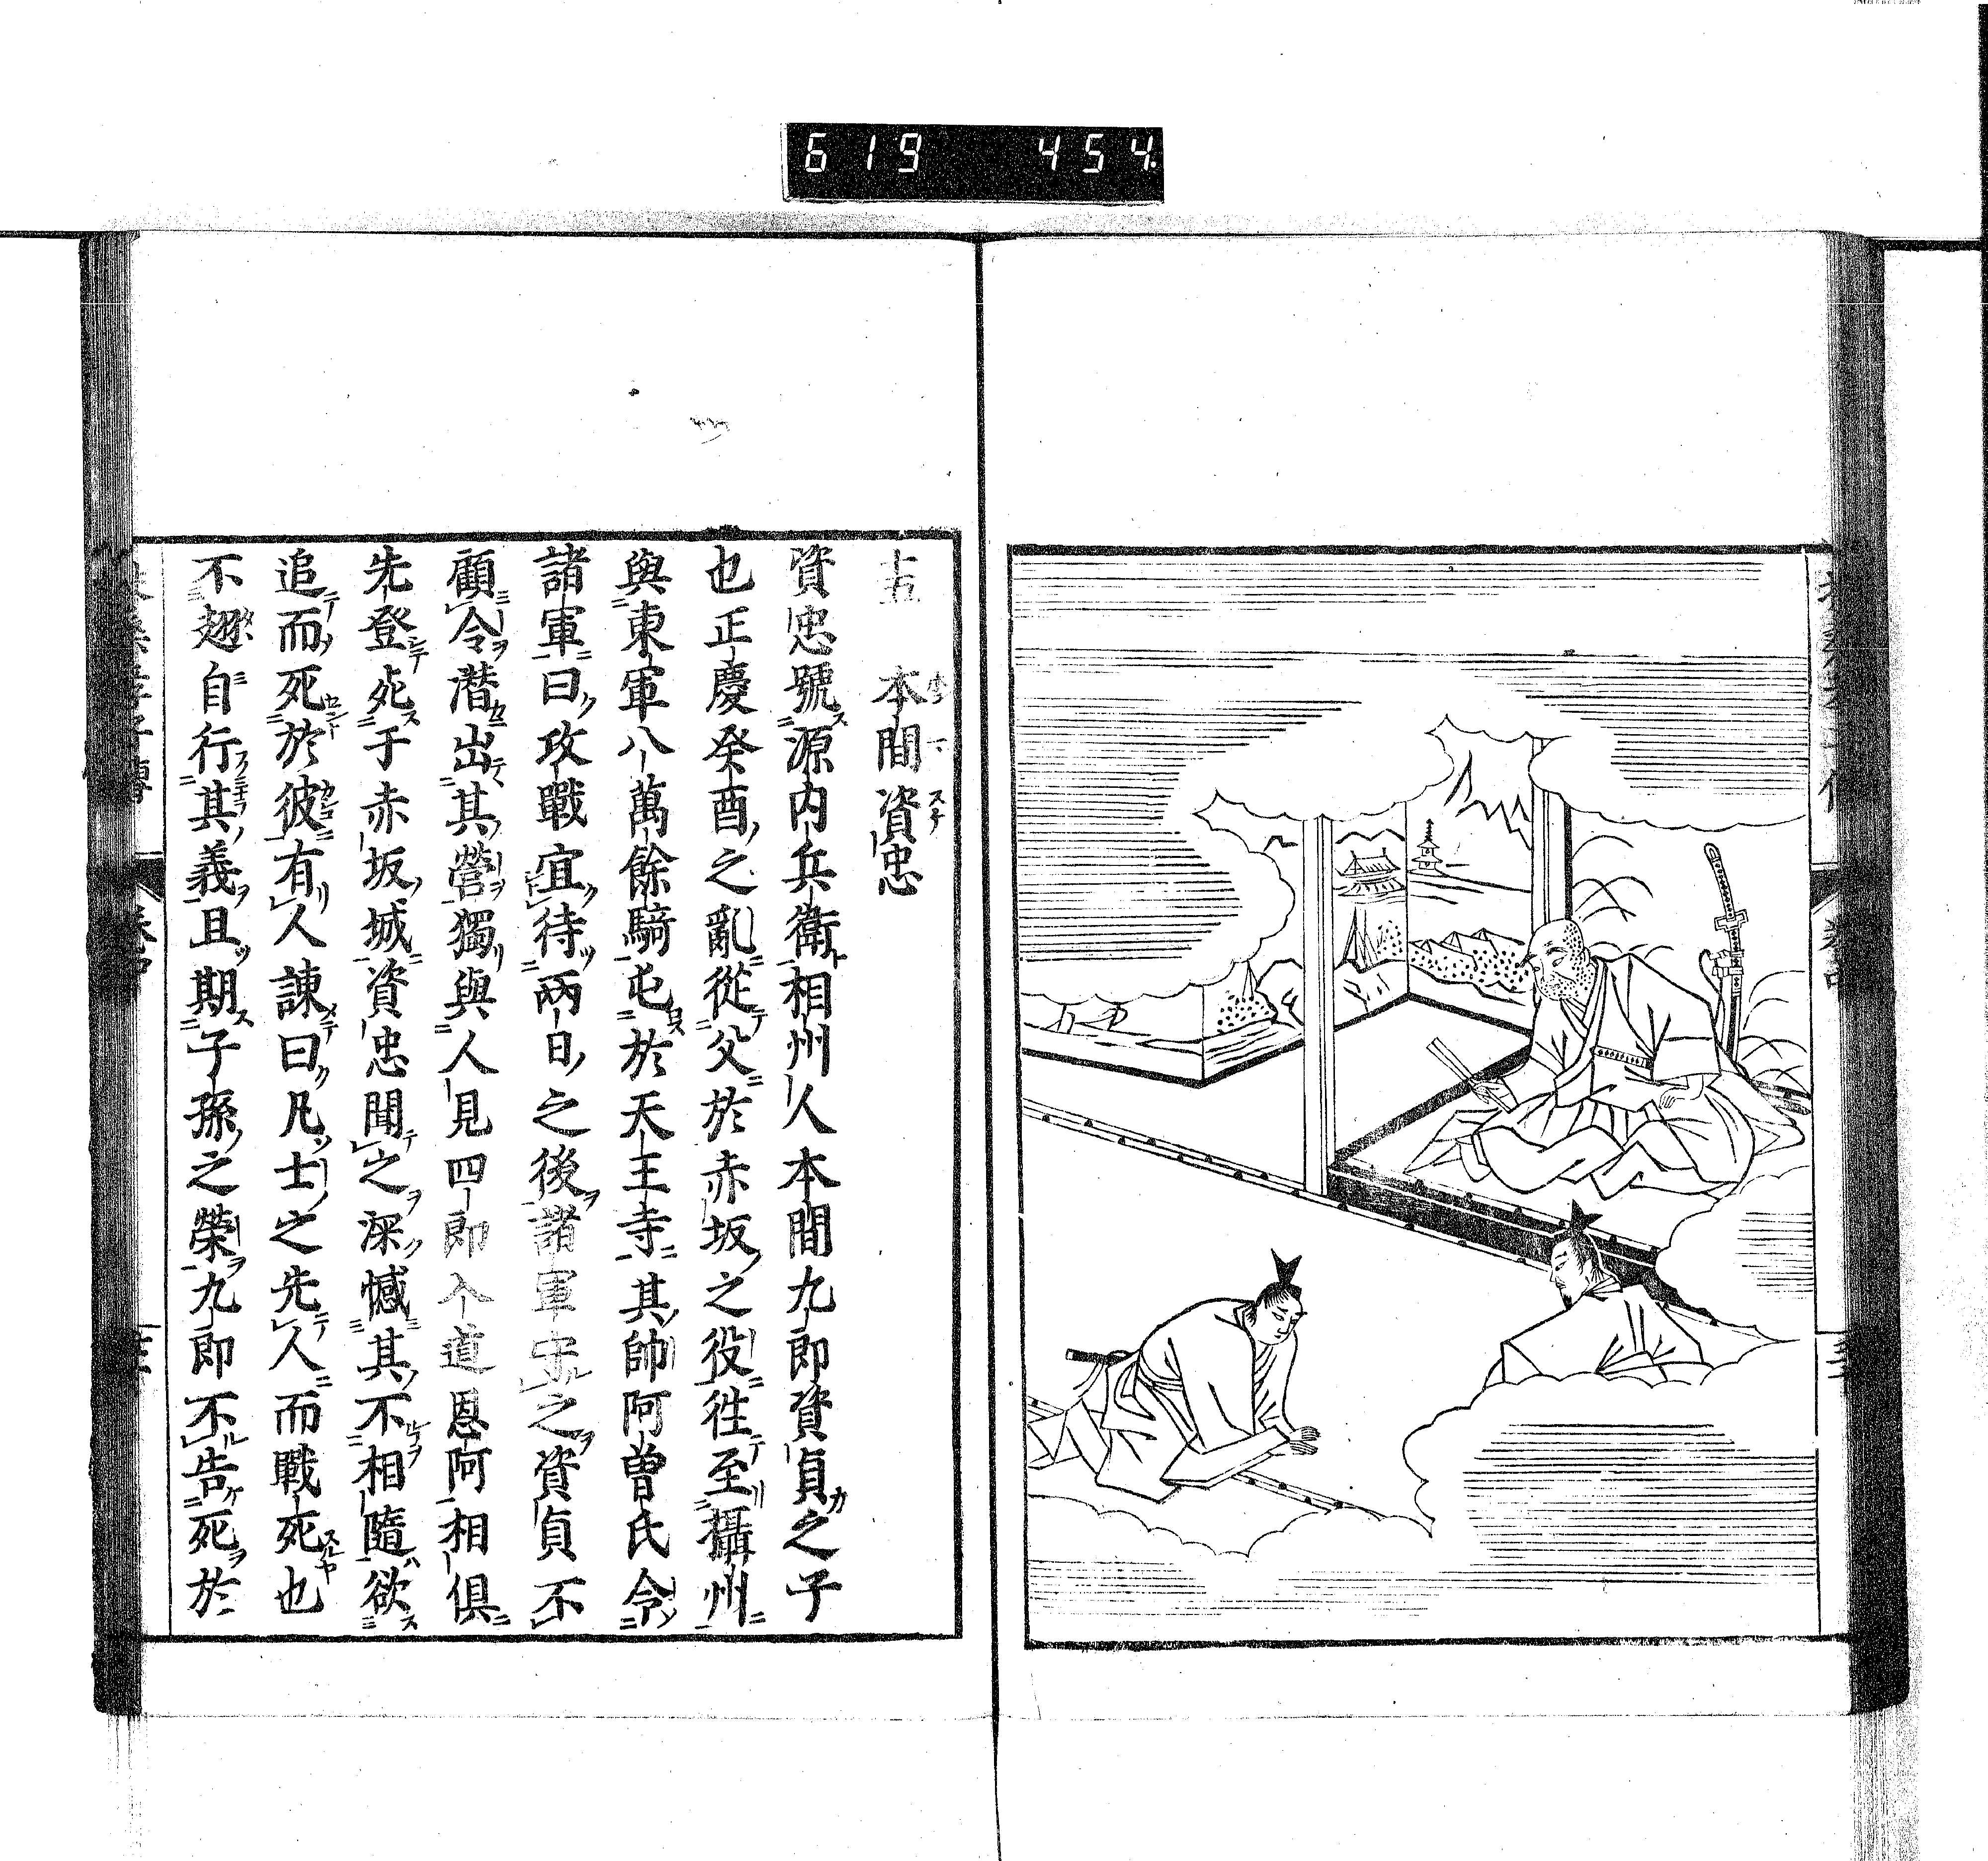 619 454
十五 本間資忠
資忠號源内兵衛相州人本間九郎資貞之子
也正慶癸酉之亂從父於赤坂之役徃至攝州
與東軍八萬餘騎屯於天王寺其帥阿曽氏令
諸軍曰攻戰宜待兩日之後諸軍守之資貞不
顧令潜出其營獨與人見四郎入道恩阿相俱
先登死于赤坂城資忠聞之深憾其不相隨欲
追而死於彼有人諫曰凡士之先人而戰死也
不趐自行其義且期子孫之榮九郎不告死於